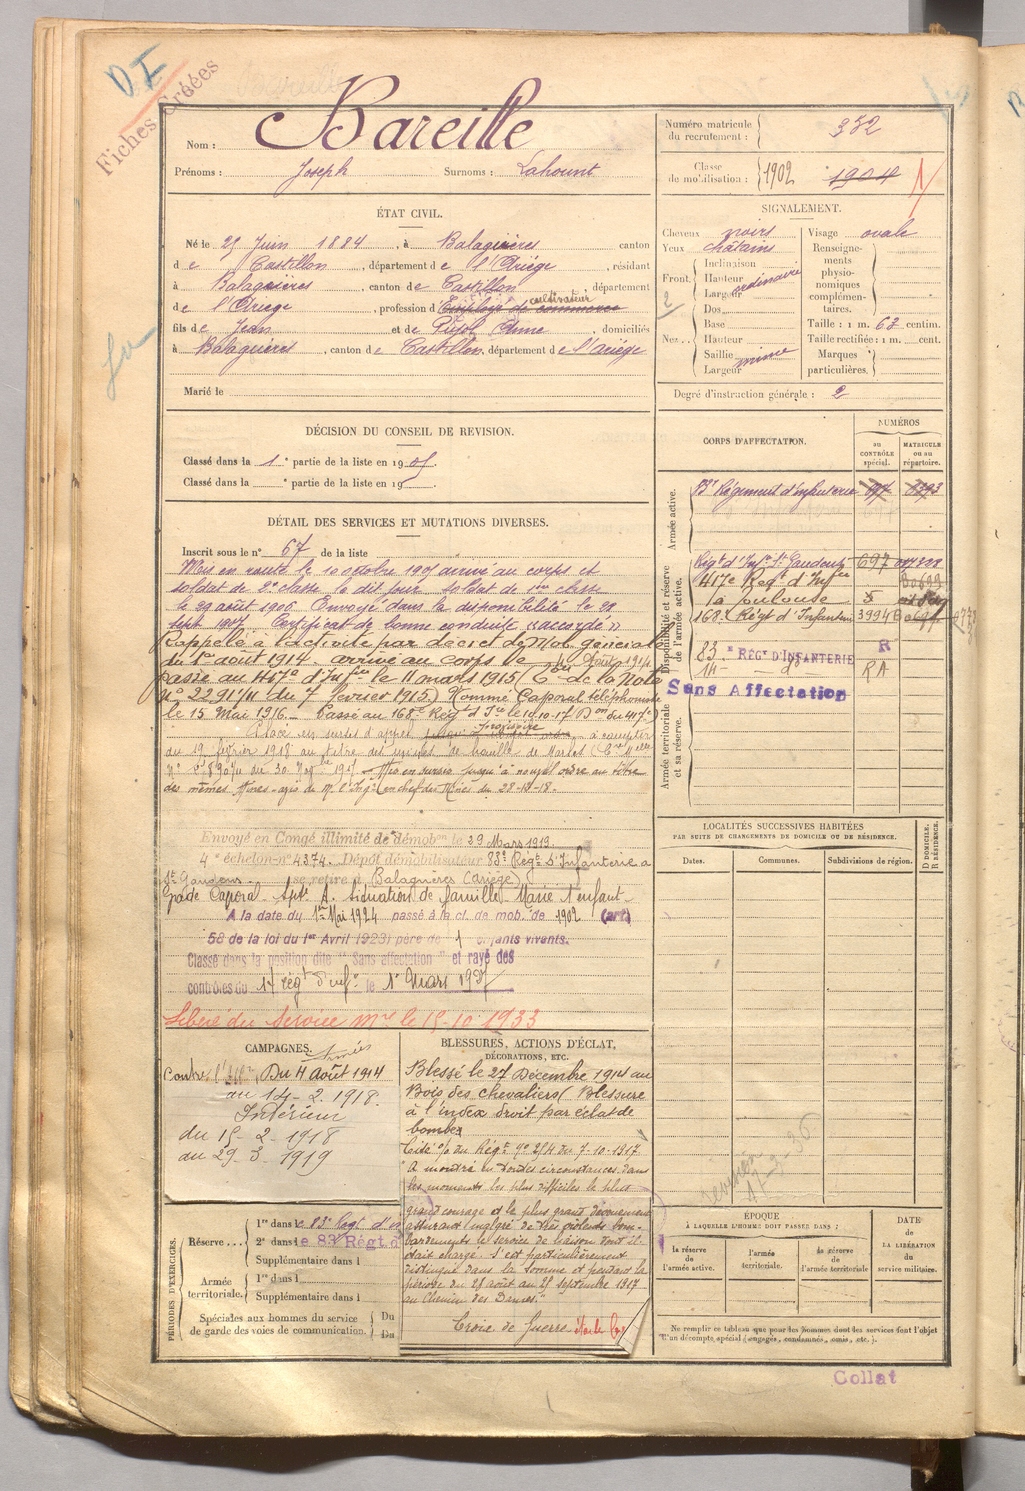 D I
Fiches Créées
Nom : Bareille
Prénoms : Joseph Surnoms : Lahount
Numéro matricule
du recrutement : 372
Classe
de mobilisation : 1902 1904
ÉTAT CIVIL.
Né le 25 Juin 1884, à Balaguères canton
de Castillon, département de l'Ariège, résidant
à Balaguères, canton de Castillon département
de l'Ariège, profession d'Employé de commerce cultivateur
fils de Jean et de Pujol Anne, domiciliés
à Balaguères, canton de Castillon, département de l'Ariège
Marié le
SIGNALEMENT.
Cheveux noirs Visage ovale
Yeux châtains
Front Inclinaison
Hauteur ordinaire
Largeur
Nez Dos
Base
Hauteur
Saillie
Largeur
Renseignements
physionomiques
complémentaires.
Taille : 1 m. 62 centim.
Taille rectifiée : 1 m. cent.
Marques
particulières.
Degré d'instruction générale : 2
DÉCISION DU CONSEIL DE REVISION.
Classé dans la 1e partie de la liste en 1905
Classé dans la e partie de la liste en 19
DÉTAIL DES SERVICES ET MUTATIONS DIVERSES.
Inscrit sous le n° 67 de la liste
Mis en route le 10 octobre 1905 arrivé au corps et
soldat de 2e classe le dit jour soldat de 1ère classe
le 29 août 1906. Envoyé dans la disponibilité le 28
sept 1907. Certificat de bonne conduite "accordé"
Rappelé à l'activité par décret de Mob. générale
du 1er août 1914. arrivé au corps le 4 Août 1914
Passé au 417e d'Infrie le 11 mars 1915 ( de la Note
n° 22911/11 du 7 février 1915) Nommé Caporal téléphoniste
le 15 Mai 1916. Passé au 168e Régt d'Ie le 10-10-17 (Don du 417e)
Placé en sursis d'appel provisoire, à compter
du 19 février 1918 au titre des mines de houille de Marles
Mis en sursis jusqu'à nouvel ordre au titre
des mêmes Mines - avis de Mr l'Ingr en chef des Mines du 28-12-18.
Envoyé en Congé illimité de démobon le 29 Mars 1919
4e échelon n° 4374. Dépôt démobilisateur 83e Régt d'Infanterie à
St Gaudens se retire à Balaguères (Ariège)
Grade Caporal - Situation de famille - Marié 1 enfant
A la date du 1er Mai 1924 passé à la cl. de mob. de 1902 (art.
58 de la loi du 1er Avril 1923) père de 1 enfants vivants.
Classé dans la position dite "Sans affectation" et rayé des
contrôles du 14e régt d'infie le 1er Mars 1927
Libéré du Service Mre le 15-10-1933
CORPS D'AFFECTATION.
NUMÉROS
au
CONTRÔLE
spécial.
MATRICULE
ou au
répertoire.
Armée active.
83e Régiment d'infanterie 697
Disponibilité et réserve
de l'armée active.
Régt d'Infie St Gaudens 697
417e Régt d'Infie
à Toulouse
168e Régt d'Infanterie 3994
83e RÉGt D'INFANTERIE R
14 - d° - RA
Sans Affectation
Armée territoriale
et sa réserve.
LOCALITÉS SUCCESSIVES HABITÉES
PAR SUITE DE CHANGEMENTS DE DOMICILE OU DE RÉSIDENCE.
Dates. Communes. Subdivisions de région.
D DOMICILE.
R RÉSIDENCE.
CAMPAGNES.
Armées
Contre l'Allne, Du 4 Août 1914
au 14-2-1918
Intérieur
du 15-2-1918
au 29-3-1919
BLESSURES, ACTIONS D'ÉCLAT,
DÉCORATIONS, ETC.
Blessé le 27 Décembre 1914 au
Bois des chevaliers (Blessure
à l'index droit par éclat de
bombe)
Cité o/o du Régt n° 254 du 7-10-1917
"A montré en toutes circonstances, dans
les moments les plus difficiles le plus
grand courage et le plus grand dévouement
assurant malgré de très violents bom-
bardements le service de liaison dont il
était chargé. S'est particulièrement
distingué dans la Somme et pendant la
période du 28 août au 25 septembre 1917
au Chemin des Dames."
Croix de Guerre
PÉRIODES D'EXERCICES.
Réserve... 1re dans le 83e Régt d'in
2e dans le 83e Régt d'
Supplémentaire dans l
Armée
territoriale. 1re dans l
Supplémentaire dans l
Spéciales aux hommes du service
de garde des voies de communication. Du
Du
révision
17-3-36
ÉPOQUE
À LAQUELLE L'HOMME DOIT PASSER DANS :
la réserve
de l'armée active.
l'armée
territoriale.
la réserve
de l'armée territoriale
DATE
de
LA LIBÉRATION
du
service militaire.
Ne remplir ce tableau que pour les hommes dont les services font l'objet
d'un décompte spécial (engagés, condamnés, omis, etc.).
Collat